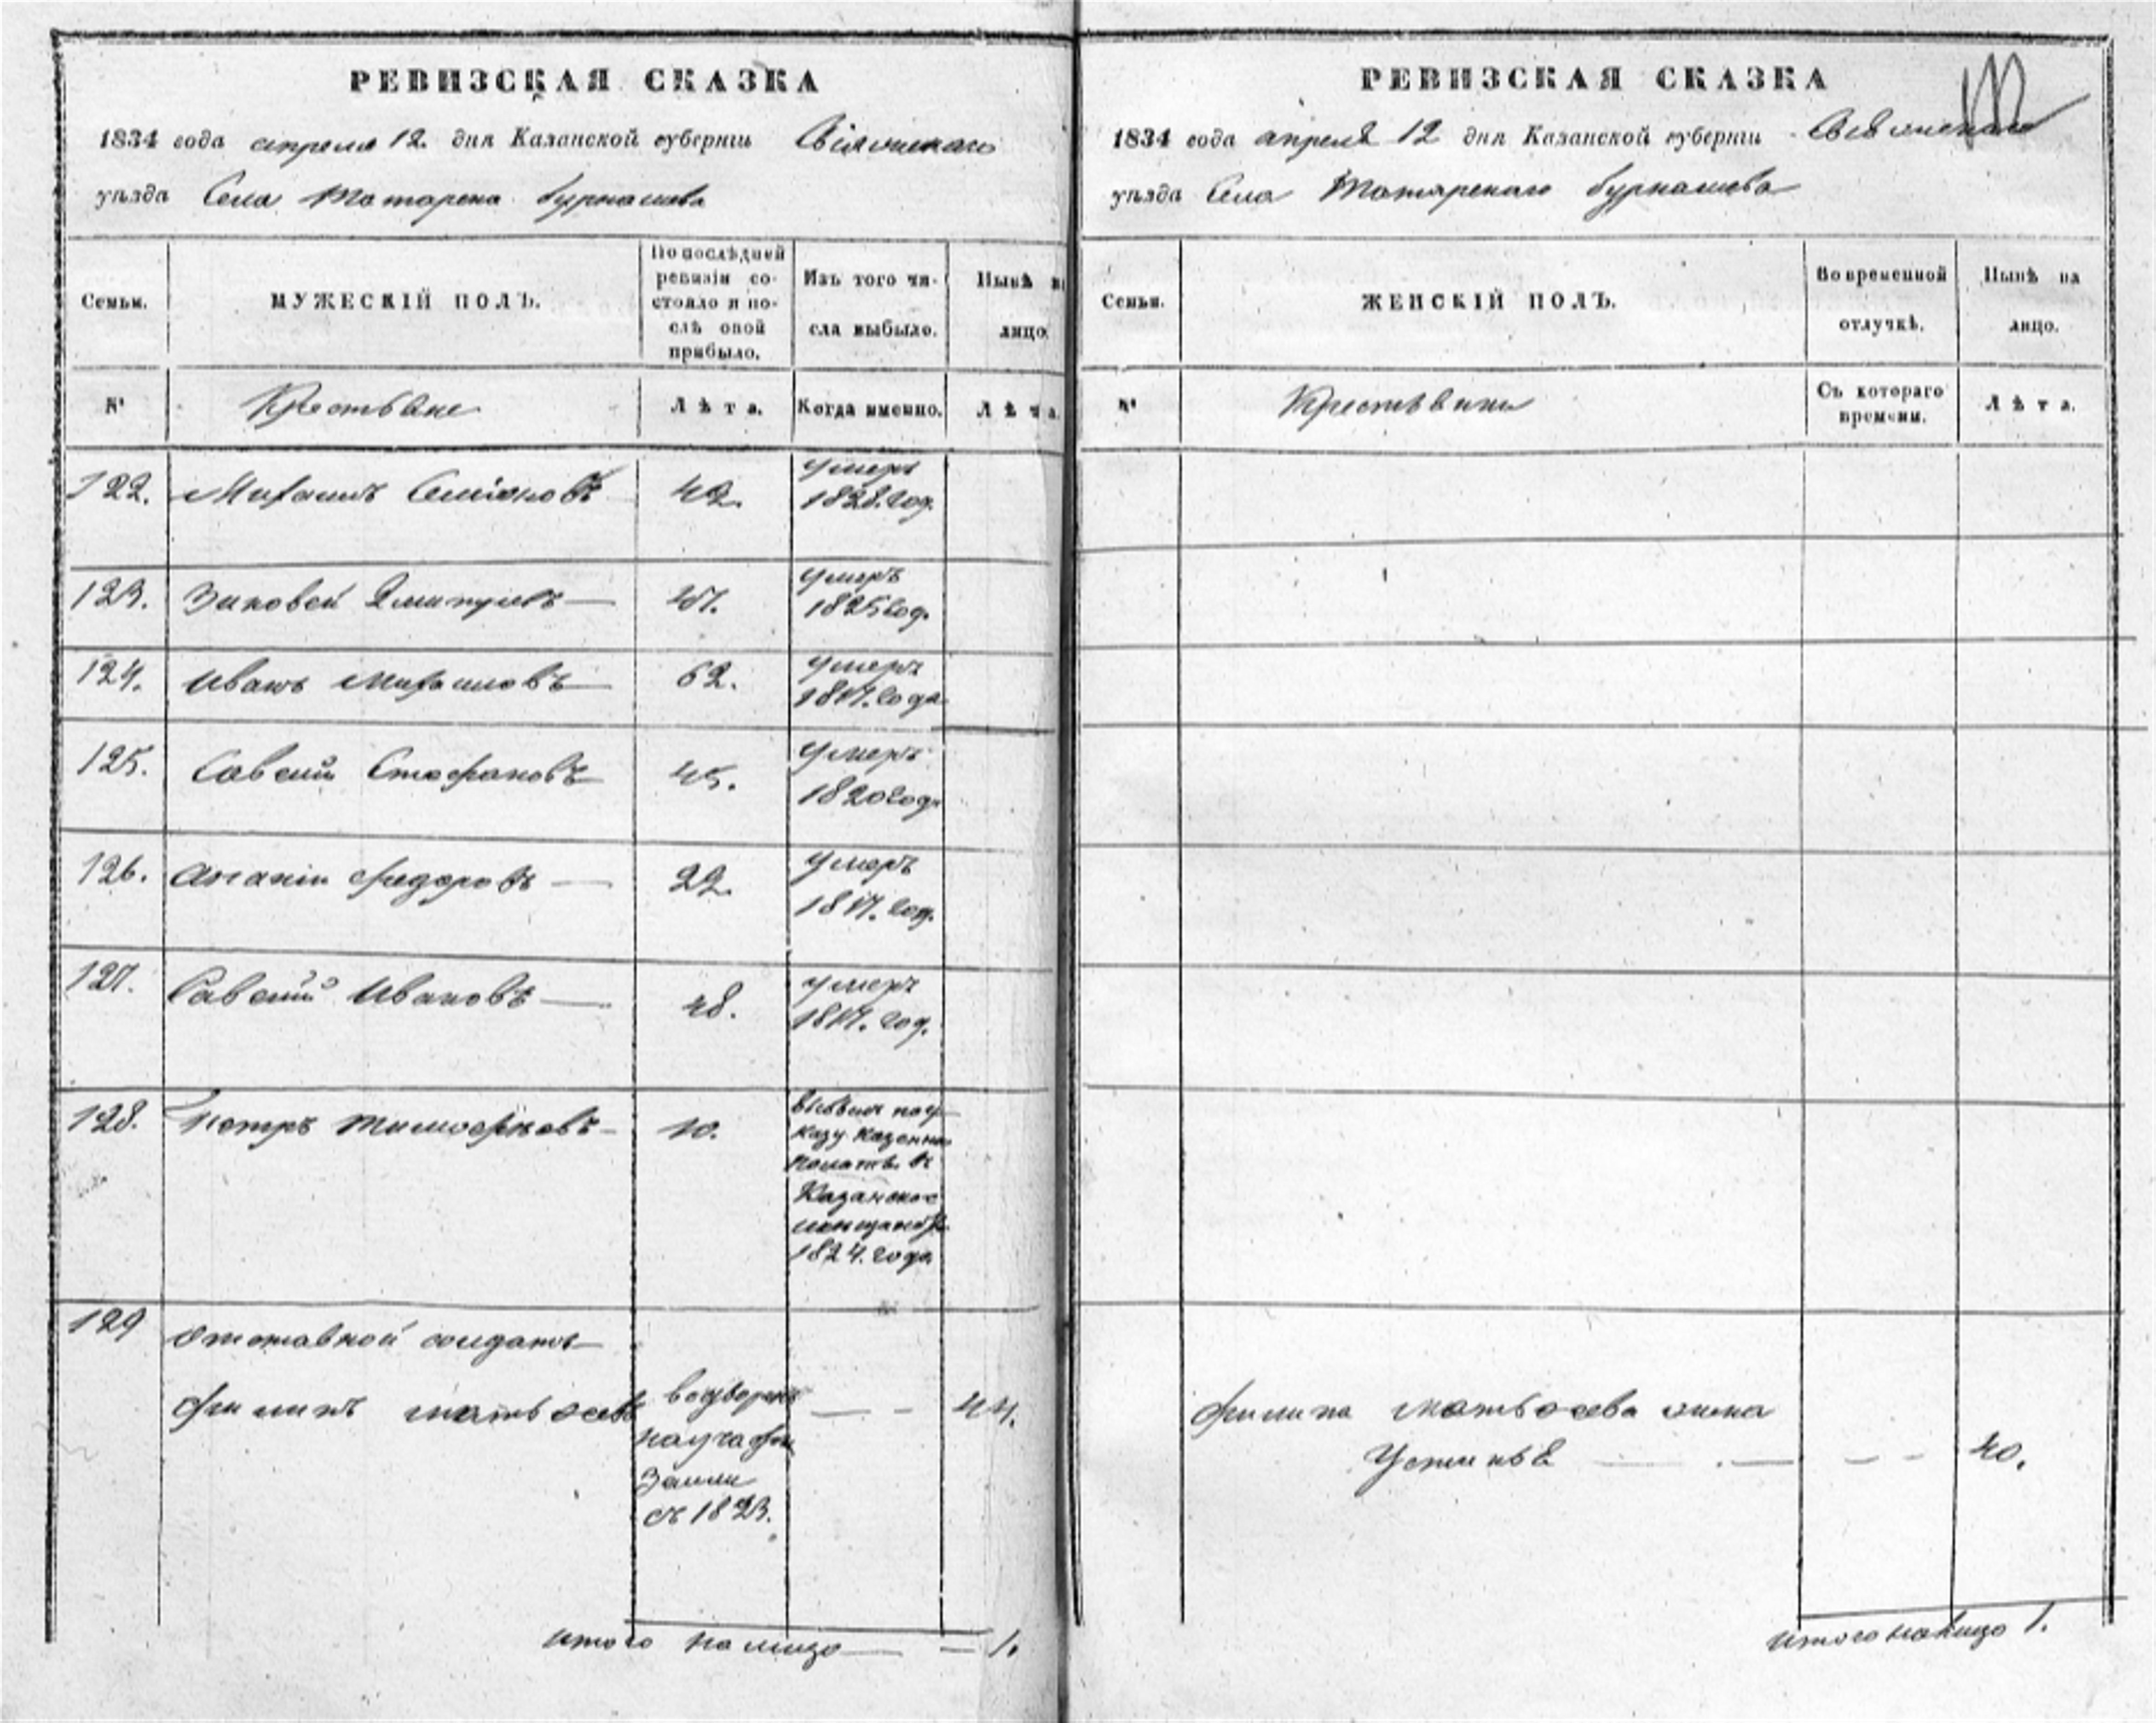 РЕВИЗСКАЯ СКАЗКА
1834 года апреля 12. дня Казанской губернiи Свiяжскаго
уѣзда Села Татарска бурнашева
Семьи.
МУЖЕСКIЙ ПОЛЪ.
По послѣдней
ревизiи со-
стояло и по-
слѣ оной
прибыло.
Изъ того чи-
сла выбыло.
Нынѣ н
лицо
№
Крестьяне
Лѣта.
Когда именно.
Лѣта.
122. Михаилъ Семiоновъ 42. умеръ
1828. год.
123. Зиновей Дмитрiевъ 47. умеръ
1825 год.
124. Иванъ Михаиловъ 62. умеръ
1817. года
125. Савелiй Стефановъ 45. умеръ
1820 год.
126. Ананiи Федоровъ 22. умеръ
1817. год.
127. Савелiй Ивановъ 48. умеръ
1817. год.
128. Петръ Тимофѣевъ 10. выбылъ по у-
казу казенно
полаты въ
Казанское
мещанство
1824. года
129 отставной солдатъ
Филипъ Матвеевъ водворенъ 44.
Земли
съ 1823.
итого на лицо 1.
РЕВИЗСКАЯ СКАЗКА
1834 года апреля 12 дня Казанской губернiи Свiяжскаго
уѣзда Села Татарскаго бурнашева
Семьи.
ЖЕНСКIЙ ПОЛЪ.
Во временной
отлучкѣ.
Нынѣ на
лицо.
№
Крестьянки
Съ котораго
времени.
Лѣта.
Филипа Матвоева жена
Устинья 40.
итого налицо 1.